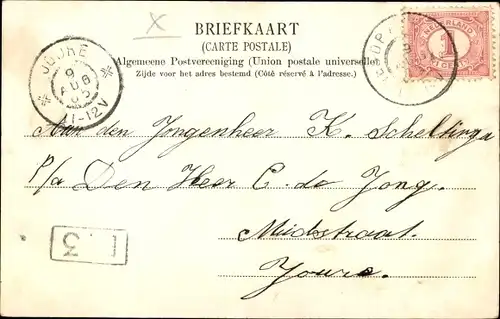 BRIEFKAART
(CARTE POSTALE)
Algemeene Postvereeniging (Union postale universelle)
Zijde voor het adres bestemd (Côté réservé à l'adresse.)
JOURE
9 AUG 05
11-12V
NEDERLAND
1 CENT
Aan den Jongenheer K. Scheltinga
P/a Den Heer C. de Jong.
Midstraat.
Joure.
3